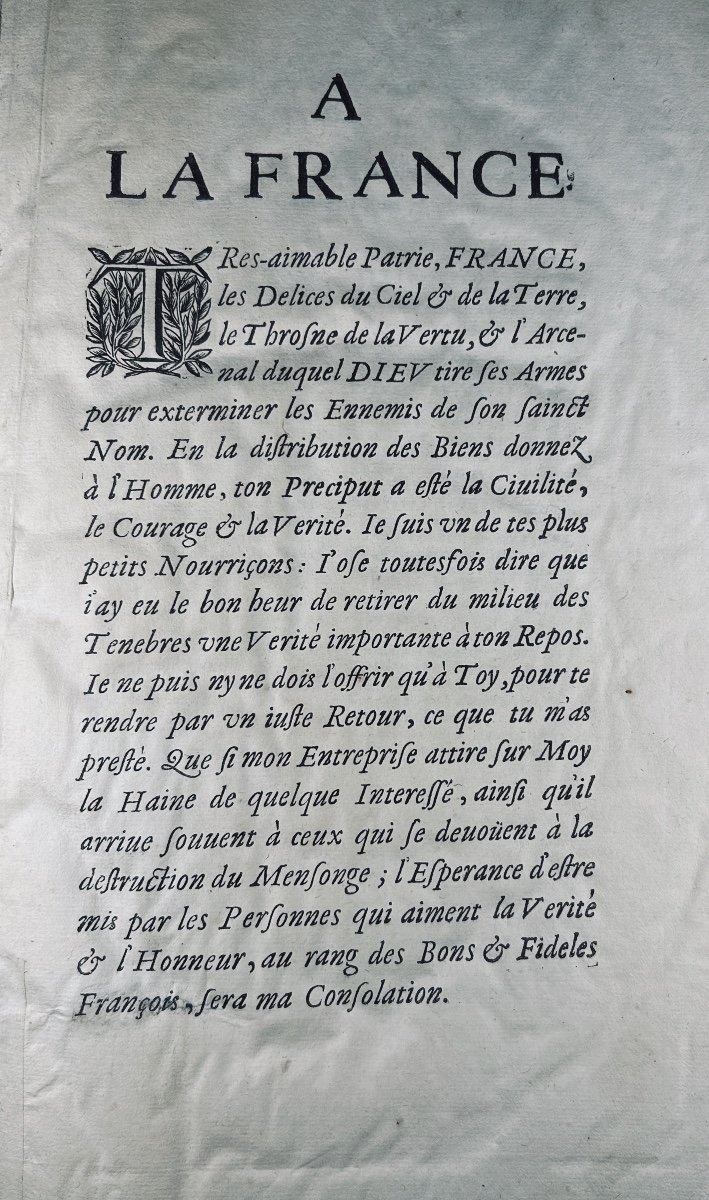 A
LA FRANCE.
TRes-aimable Patrie, FRANCE,
les Delices du Ciel & de la Terre,
le Throſne de la Vertu, & l'Arce-
nal duquel DIEV tire ſes Armes
pour exterminer les Ennemis de ſon ſainct
Nom. En la diſtribution des Biens donnez
à l'Homme, ton Preciput a eſté la Ciuilité,
le Courage & la Verité. Ie ſuis vn de tes plus
petits Nourriçons: I'oſe toutesfois dire que
i'ay eu le bon heur de retirer du milieu des
Tenebres vne Verité importante à ton Repos.
Ie ne puis ny ne dois l'offrir qu'à Toy, pour te
rendre par vn iuſte Retour, ce que tu m'as
preſté. Que ſi mon Entrepriſe attire ſur Moy
la Haine de quelque Intereſſé, ainſi qu'il
arriue ſouuent à ceux qui ſe deuoüent à la
deſtruction du Menſonge; l'Eſperance d'eſtre
mis par les Perſonnes qui aiment la Verité
& l'Honneur, au rang des Bons & Fideles
François, ſera ma Conſolation.